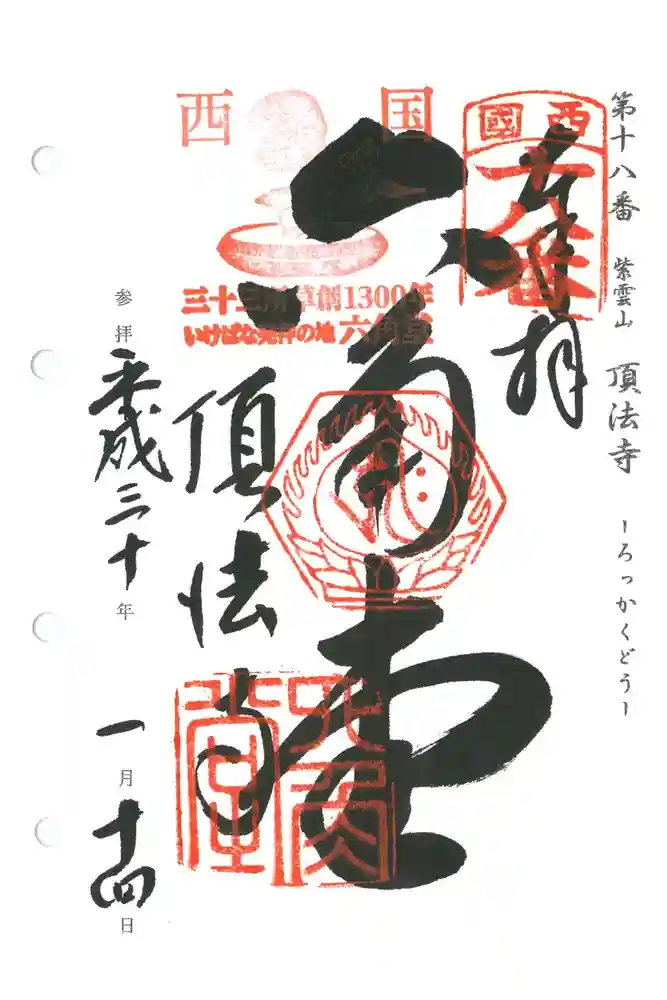 第十八番 紫雲山 頂法寺 ーろっかくどうー
西國
十八番
奉拝
西国
三十三所草創1300年
いけばな発祥の地 六角堂
六角堂
頂法寺
六角堂
参拝 平成三十年 一月十四日